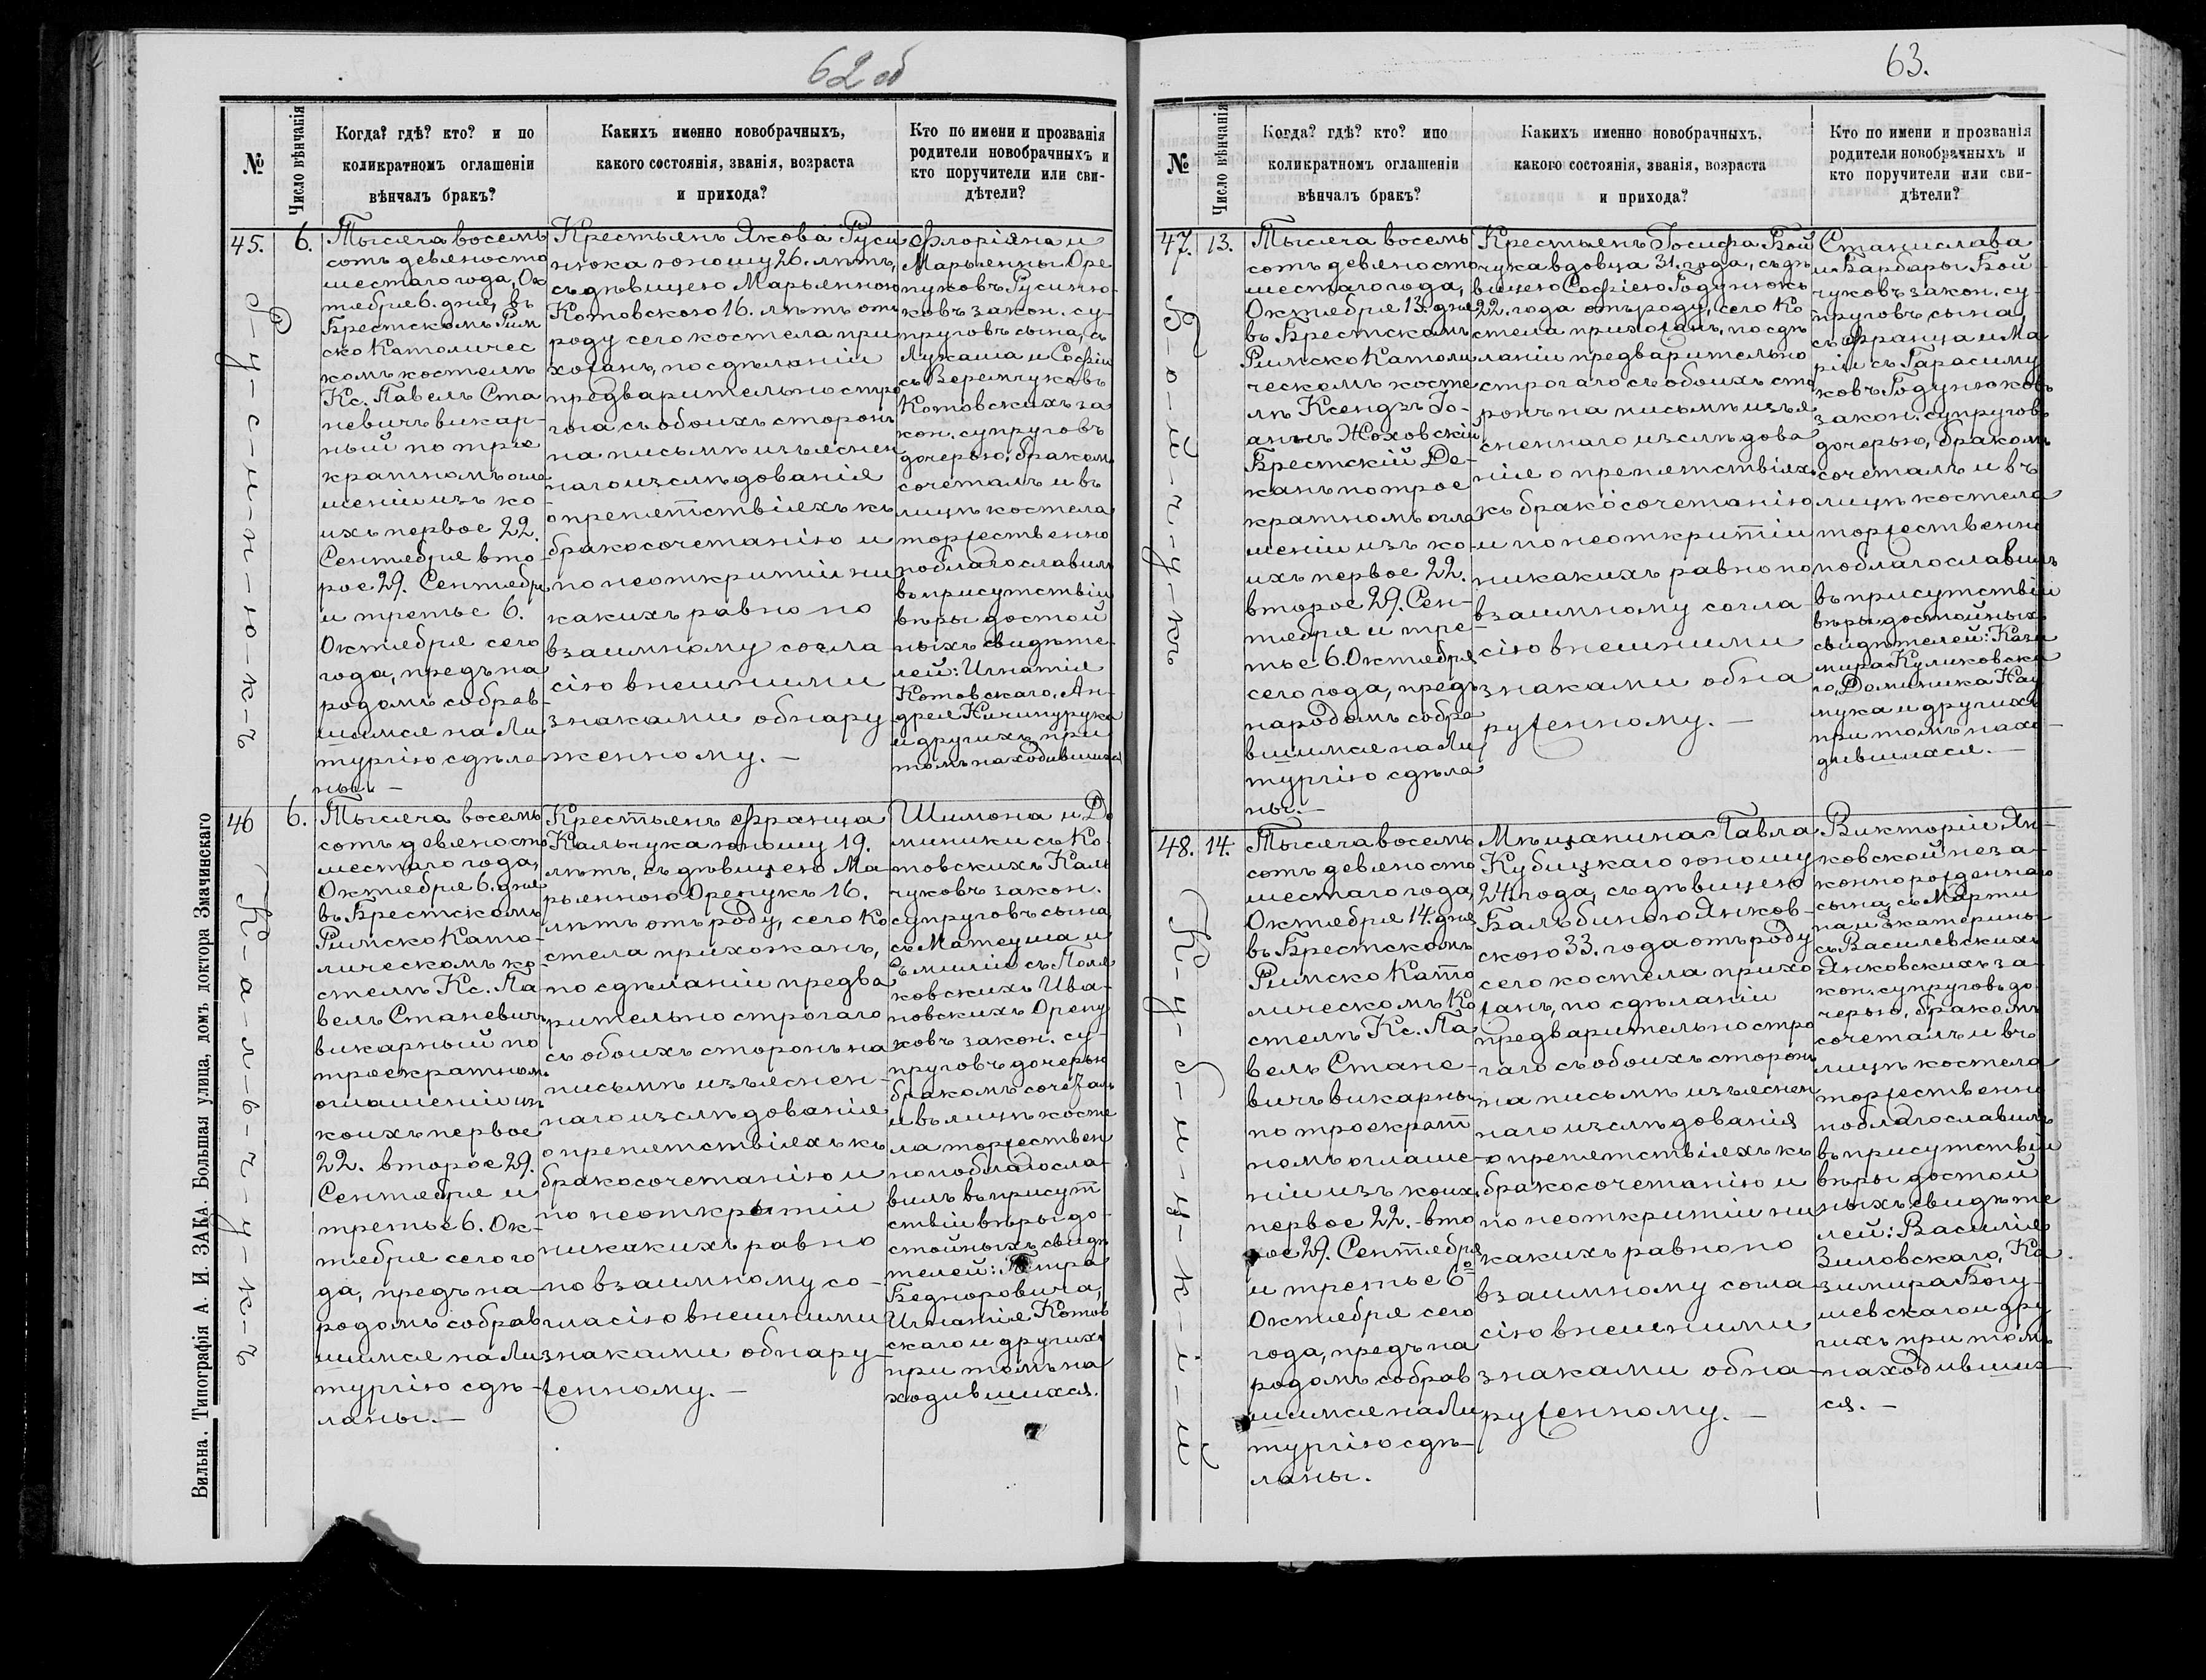 62 об
№
Число вѣнчанія
Когда? гдѣ? кто? и по
коликратномъ оглашеніи
вѣнчалъ бракъ?
Какихъ именно новобрачныхъ,
какого состоянія, званія, возраста
и прихода?
Кто по имени и прозванія
родители новобрачныхъ и
кто поручители или сви-
дѣтели?
45.
6.
Р-у-с-и-н-ю-к-ъ
Тысяча восемь
сотъ девяносто
шестаго года, Ок
тября 6. дня, въ
Брестскомъ Рим
ско Католичес
комъ костелѣ
Кс. Павелъ Ста
невичъ викар-
ный по трое
кратномъ огла
шеніи изъ ко-
ихъ первое 22.
Сентября вто-
рое 29. Сентября
и третье 6.
Октября сего
года, предъ на
родомъ собрав-
шимся на Ли
тургію сдѣла
ны. —
Крестьянъ Якова Руси
нюка юношу 26. лѣтъ,
съ дѣвицею Марьянною
Котовскою 16. лѣтъ отъ
роду сего костела при
хожанъ, по сдѣланіи
предварительно стро
гога съ обоихъ сторонъ
на письмѣ изъяснен
наго изслѣдованія
о препятствіяхъ къ
бракосочетанію и
по неоткритіи ни
какихъ равно по
взаимному согла
сію внешними
знаками обнару
женному. —
Флоріяна и
Марьянны Оре
пуковъ Русиню-
ковъ закон. су-
пруговъ сына, съ
Лукаша и Софіи
съ Веремчуковъ
Котовскихъ за
кон. супруговъ
дочерью, бракомъ
сочеталъ и въ
лицѣ костела
торжественно
поблагославилъ
въ присутствіи
вѣры достой
ныхъ свидѣте-
лей: Игнатія
Котовскаго, Ан-
дрея Ничипурука
и другихъ при
томъ находившихся
46
6.
К-а-л-ь-ч-у-к-ъ
Тысяча восемь
сотъ девяносто
шестаго года,
Октября 6. дня
въ Брестскомъ
Римско Като-
лическомъ ко-
стелѣ Кс. Па
велъ Станевичъ
викарный по
троекратномъ
оглашеніи изъ
коихъ первое
22. второе 29.
Сентября и
третье 6. Ок-
тября сего го
да, предъ на-
родомъ собрав
шимся на Ли
тургію сдѣ-
ланы. —
Крестьянъ Франца
Кальчука юношу 19.
лѣтъ, съ дѣвицею Ма
рьянною Орепукъ 16.
лѣтъ отъ роду, сего ко
стела прихожанъ,
по сдѣланіи предва
рительно строгаго
съ обоихъ сторонъ на
письмѣ изъяснен-
наго изслѣдованія
о препятствіяхъ къ
бракосочетанію и
по неоткрытіи
никакихъ равно
по взаимному со-
гласію внешними
знаками обнару-
женному. —
Шимона и До
миники съ Ко-
товскихъ Каль
чуковъ закон.
супруговъ сына,
съ Матеуша и
Емиліи съ Поля
ковскихъ Ива-
новскихъ Орепу
ковъ закон. су
пруговъ дочерью
бракомъ сочеталъ
и въ лицѣ косте
ла торжествен
но поблагосла-
вилъ въ присут
ствіи вѣры до-
стойныхъ свидѣ
телей: Петра
Бедноровича,
Игнатія Котов
скаго и другихъ
при томъ на
ходившихся.
Вильна. Типографія А. И. ЗАКА. Большая улица, домъ доктора Змачинскаго
63.
№
Число вѣнчанія
Когда? гдѣ? кто? ипо
коликратномъ оглашеніи
вѣнчалъ бракъ?
Какихъ именно новобрачныхъ,
какого состоянія, званія, возраста
и прихода?
Кто по имени и прозванія
родители новобрачныхъ и
кто поручители или сви-
дѣтели?
47.
13.
Б-о-й-ч-у-къ
Тысяча восемь
сотъ девяносто
шестаго года,
Октября 13. дня
въ Брестскомъ
Римско Католи
ческомъ косте
лѣ Ксендзъ Іо-
аннъ Жоховскій
Брестскій Де-
канъ по трое
кратномъ огла
шеніи изъ ко-
ихъ первое 22.
второе 29. Сен-
тября и тре-
тье 6. Октября
сего года, предъ
народомъ собра
вшимся на Ли
тургію сдѣла
ны. —
Крестьянъ Іосифа Бой
чука вдовца 31. года, съ дѣ
вицею Софіею Годунюкъ
22. года отъ роду, сего ко
стела прихожанъ, по сдѣ
ланіи предварительно
строгаго съ обоихъ сто
ронъ на письмѣ изъя
сненнаго изслѣдова
нія о препятствіяхъ
къ бракосочетанію
и по неоткритіи
никакихъ равно по
взаимному согла
сію внешними
знаками обна
руженному. —
Станислава
и Барбары Бой-
чуковъ закон. су-
пруговъ сына,
съ Франца и Ма
ріи съ Гарасиму
ковъ Годунюковъ
закон. супруговъ
дочерью, бракомъ
сочеталъ и въ
лицѣ костела
торжественно
поблагославилъ
въ присутствіи
вѣры достойныхъ
свидѣтелей: Кази
мира Куликовска
го, Доминика Кау
мука и другихъ
при томъ нахо-
дившихся. —
48.
14.
К-у-б-и-ц-к-і-й
Тысяча восемь
сотъ девяносто
шестаго года,
Октября 14. дня
въ Брестскомъ
Римско Като
лическомъ Ко
стелѣ Кс. Па
велъ Стане-
вичъ викарны
по троекрат
номъ оглаше-
ніи изъ коихъ
первое 22. вто
рое 29. Сентября
и третье 6о
Октября сего
года, предъ на
родомъ собрав
шимся на Ли
тургію сдѣ-
ланы.
Мѣщанина Павла
Кубицкаго юношу
24 года, съ дѣвицею
Бальбиною Янков-
скою 33. года отъ роду
сего костела прихо
жанъ, по сдѣланіи
предварительно стро
гаго съ обоихъ сторонъ
на письмѣ изъяснен
наго изслѣдованія
о препятствіяхъ къ
бракосочетанію и
по неоткритіи ни
какихъ равно по
взаимному согла
сію внешними
знаками обна-
руженному. —
Викторіи Ян-
ковской неза-
конно рожденнаго
сына, съ Марти
на и Экатерины
съ Василевскихъ
Янковскихъ за-
кон. супруговъ до-
черью, бракомъ
сочеталъ и въ
лицѣ костела
торжественно
поблагославилъ
въ присутствіи
вѣры достой
ныхъ свидѣте
лей: Василія
Зиловскаго, Ка
зимира Богу-
шевскаго и дру
гихъ при томъ
находивших-
ся. —